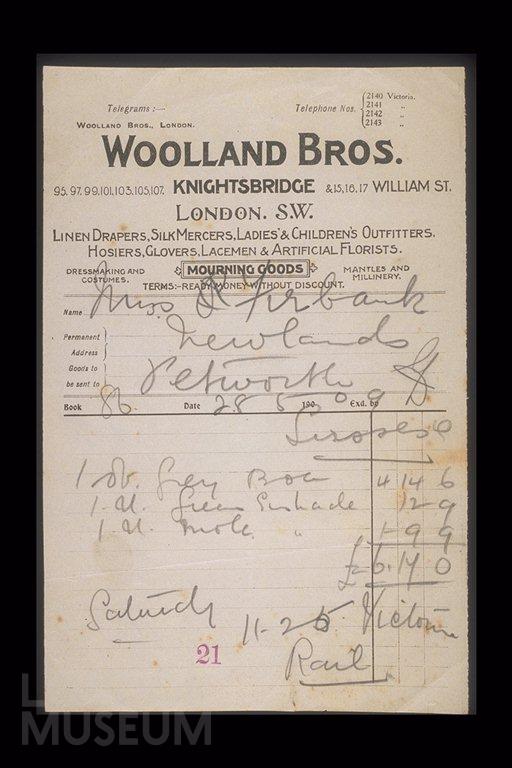 Telegrams :—
Woolland Bros., London.
Telephone Nos. 2140 Victoria.
2141 "
2142 "
2143 "
WOOLLAND BROS.
95, 97, 99, 101, 103, 105, 107, KNIGHTSBRIDGE & 15, 16, 17 WILLIAM ST.
LONDON. S.W.
LINEN DRAPERS, SILK MERCERS, LADIES' & CHILDREN'S OUTFITTERS,
HOSIERS, GLOVERS, LACEMEN & ARTIFICIAL FLORISTS.
DRESSMAKING AND COSTUMES.
MOURNING GOODS
MANTLES AND MILLINERY.
TERMS:—READY MONEY WITHOUT DISCOUNT.
Name Miss Firbank
Permanent Address Newlands
Goods to be sent to Petworth
Book 86 Date 28 5 190 9 Exd. by
1 Grey Boa 4 14 6
1 Green Sunshade 12 9
1 Mole " 1 9 9
£6. 17 0
Saturday 11-25 Victoria
Rail
21
MUSEUM